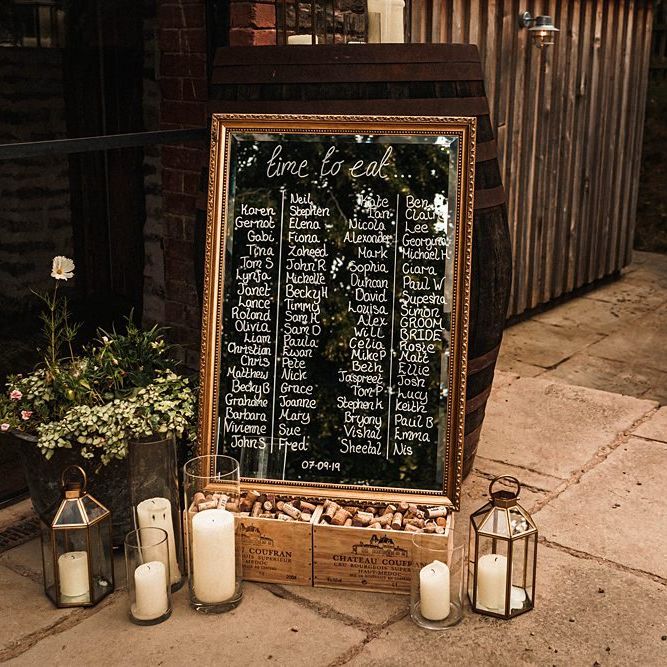 time to eat...
Karen
Gernot
Gabi
Tina
Tom S
Lynfa
Janet
Lance
Roland
Olivia
Liam
Christian
Chris
Matthew
Becky B
Barbara
Vivienne
John S
Neil
Stephen
Elena
Fiona
Zaheed
John R
Michelle
Becky H
Timmy
Sam H
Sam D
Paula
Ewan
Pete
Nick
Grace
Joanne
Mary
Sue
Fred
Kate
Ian
Nicola
Alexander
Mark
Sophia
Duncan
David
Louisa
Alex
Will
Celia
Mike P
Beth
Jaspreet
Tom P
Stephen H
Bryony
Vishal
Sheetal
Ben
Claire
Lee
Georgina
Michael H
Ciara
Paul W
Supesha
Simon
GROOM
BRIDE
Rosie
Matt
Ellie
Josh
Lucy
Keith
Paul B
Emma
Nis
07-09-19
COUFRAN
BOURGEOIS SUPERIEUR
MEDOC
CHATEAU COUFRAN
CRU BOURGEOIS SUPERIEUR
HAUT-MEDOC